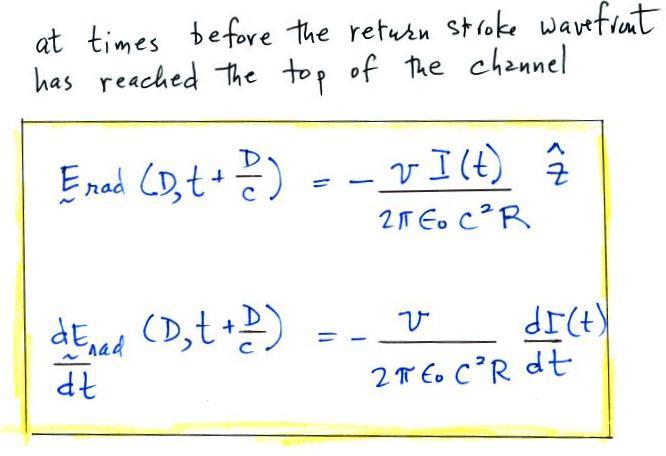 at times before the return stroke wavefront
has reached the top of the channel
E rad (D, t + D/c) = - v I(t) / 2π ε₀ c² R ẑ
dE rad / dt (D, t + D/c) = - v / 2π ε₀ c² R dI(t) / dt